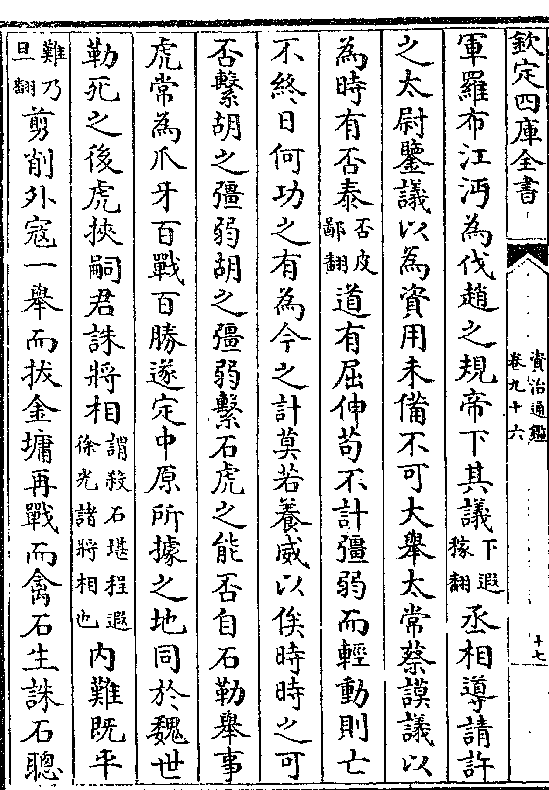 欽定四庫全書
資治通鑑
卷九十六
十七
軍羅布江沔為伐趙之規帝下其議下遐稼翻丞相導請許
之太尉鑒議以為資用未備不可大舉太常蔡謨議以
為時有否泰否皮鄙翻道有屈伸苟不計彊弱而輕動則亡
不終日何功之有為今之計莫若養威以俟時時之可
否繫胡之彊弱胡之彊弱繫石虎之能否自石勒舉事
虎常為爪牙百戰百勝遂定中原所據之地同於魏世
勒死之後虎挾嗣君誅將相謂殺石堪程遐徐光諸將相也內難既平
難乃旦翻剪削外寇一舉而拔金墉再戰而禽石生誅石聰